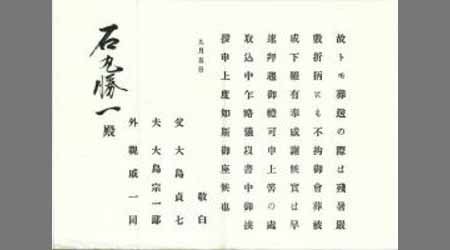 故トモ葬送の際は殘暑嚴
敷折柄にも不拘御會葬被
成下難有奉成謝候實は早
速拜趨御禮可申上筈の處
取込中乍略儀以書中御挨
拶申上度如斯御座候也
敬白
九月五日
父 大島貞七
夫 大島宗一郎
外 親戚一同
石丸勝一殿